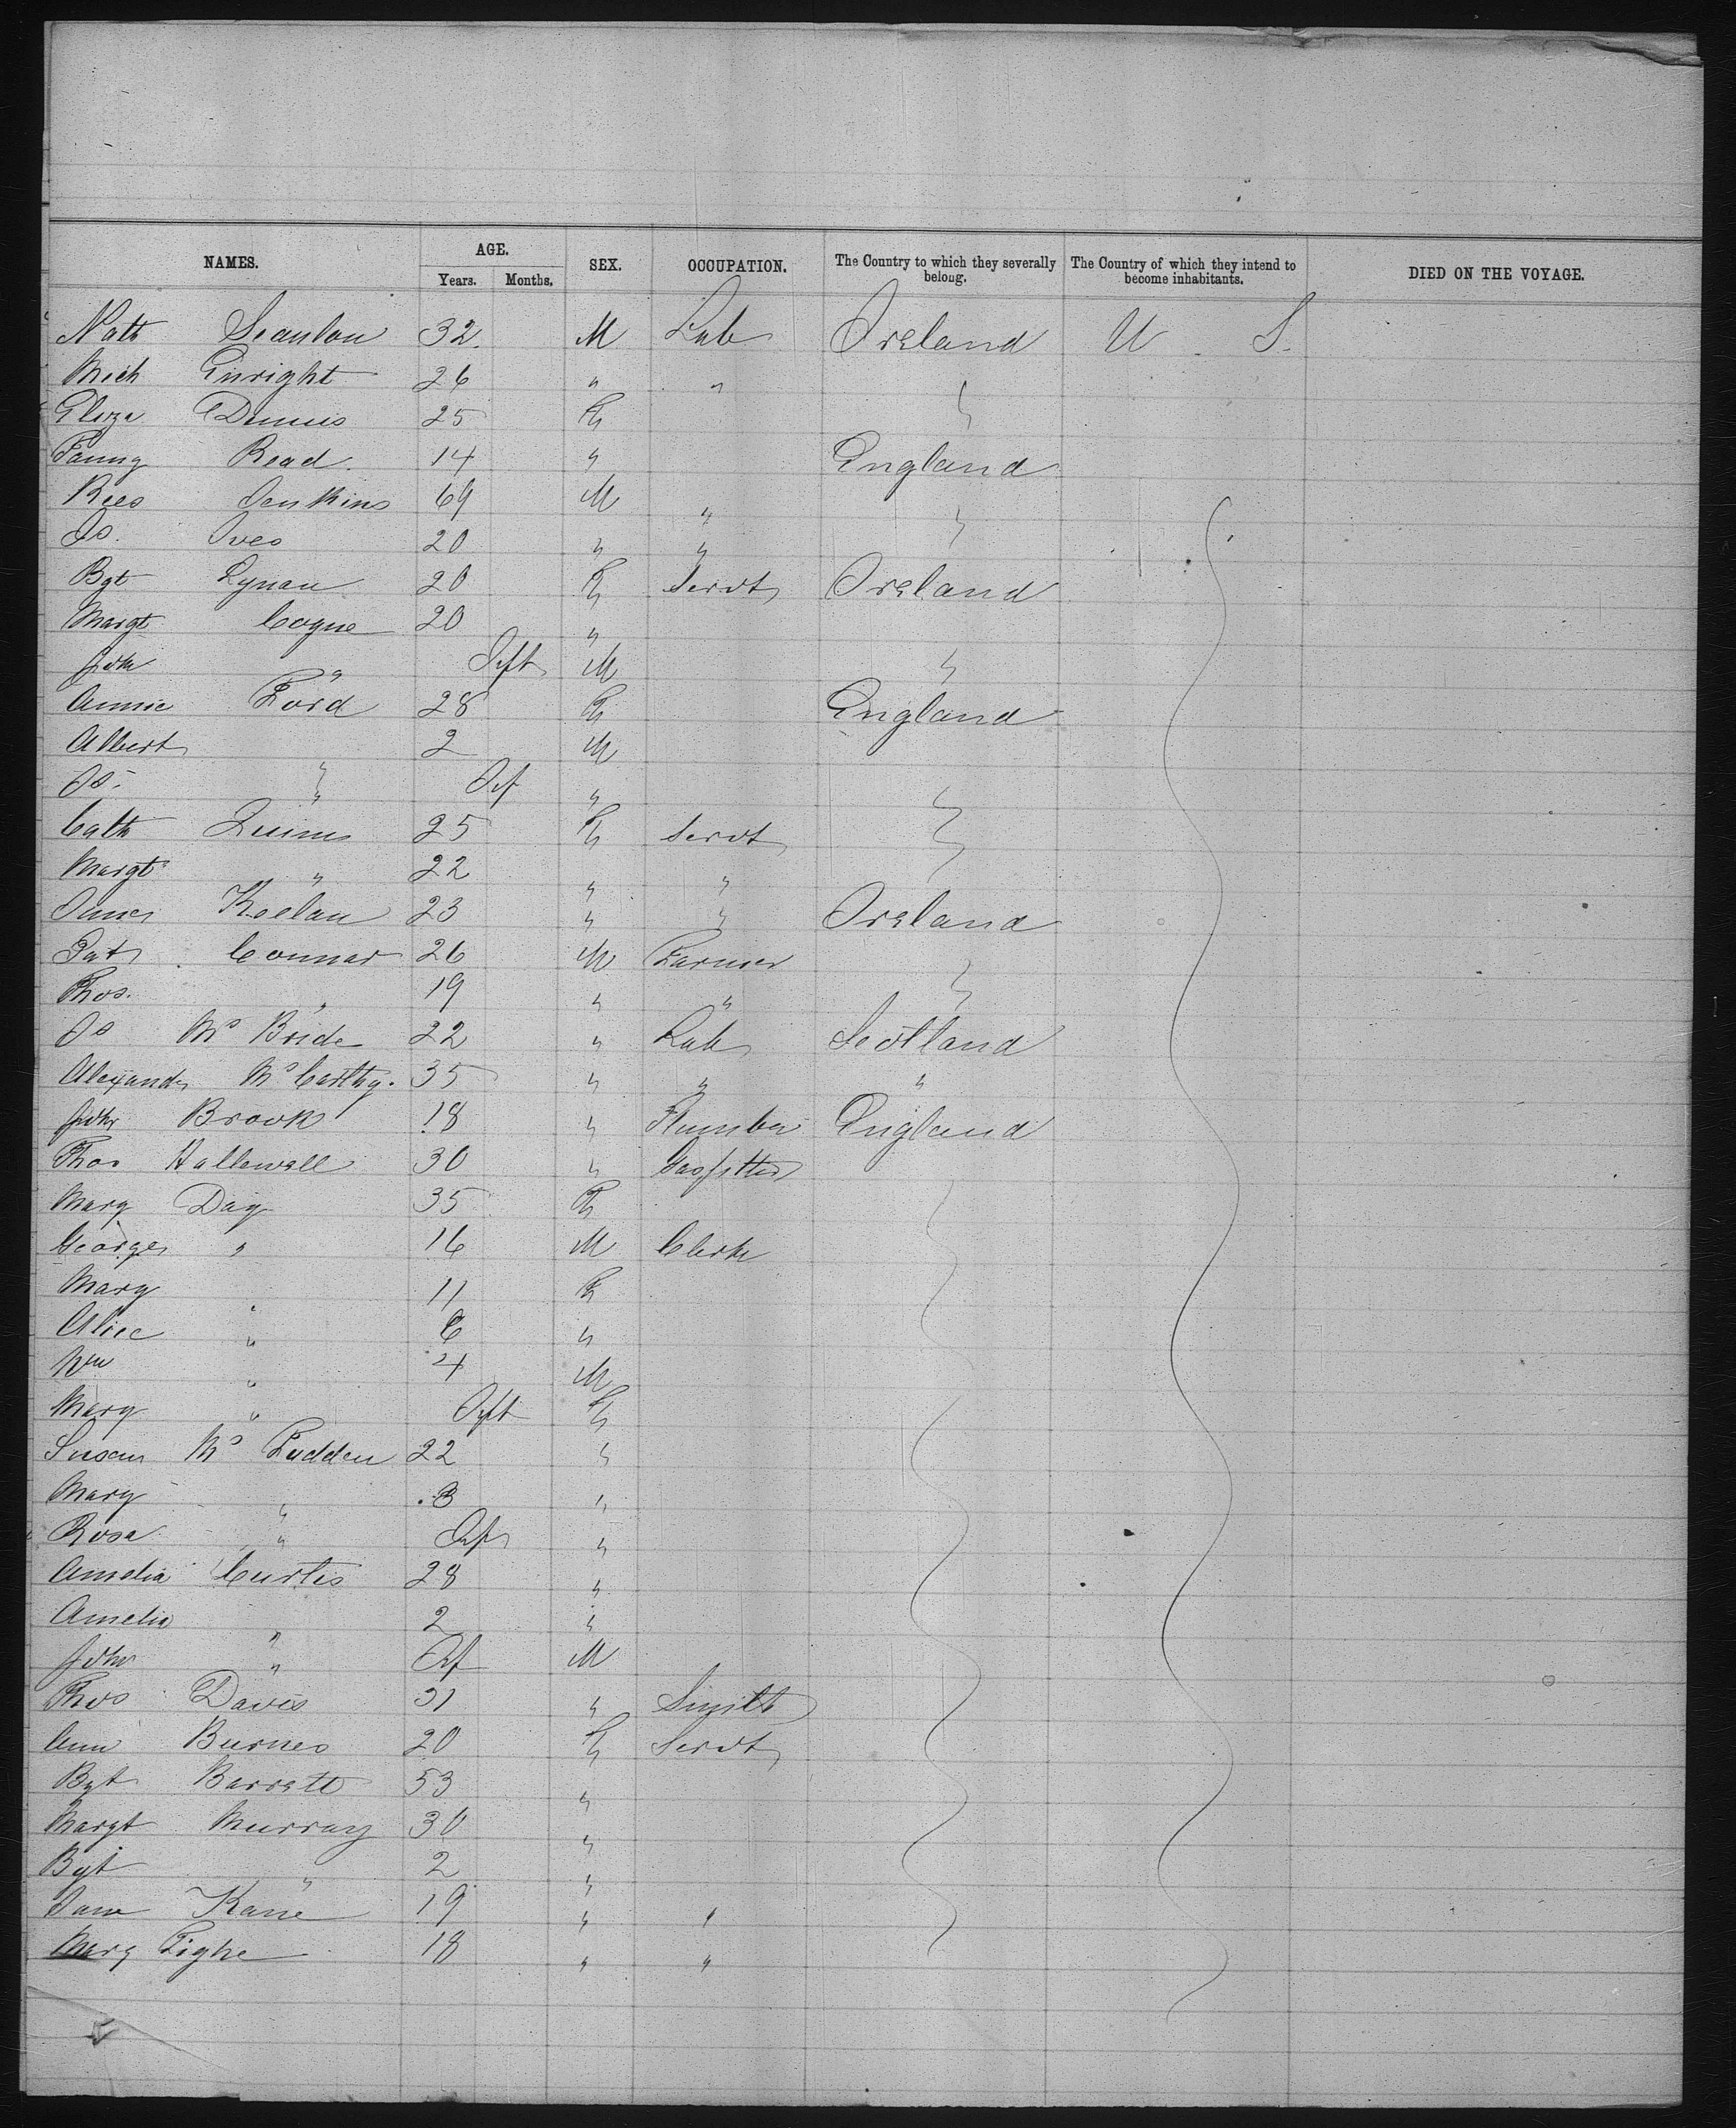 NAMES. AGE. SEX. OCCUPATION. The Country to which they severally belong. The Country of which they intend to become inhabitants. DIED ON THE VOYAGE.
Years. Months.
Nath Scanlon 32. M Lab Ireland U. S.
Mich Enright 26 " "
Eliza Dennis 25 F
Fanny Read. 14 " England
Rees Jenkins 69 M "
Js. Ives 20 " "
Bgt Lynan 20 F Servt Ireland
Margt Coyne 20 "
John " Inft M
Annie Ford 28 F England
Albert 2 M
Js. " Inf "
Cath Quinn 25 F Servt
Margt " 22 " "
James Keelan 23 " " Ireland
Pat Connar 26 M Farmer
Thos. " 19 " "
Js Mc Bride 22 " Lab Scotland
Alexander Mc Carthy. 35 " " "
John Brook 18 " Plumber England
Thos Hallewell 30 " Gasfitter
Mary Day 35 F
George " 16 M Clerk
Mary " 11 F
Alice " 6 "
Wm " 4 M
Mary " Inft F
Susan Mc Fadden 22 "
Mary " .3 "
Rosa " Inf "
Amelia Curtis 28 "
Amelia " 2 "
John " Inf M
Thos Davis 31 " Smith
Ann Burnes 20 F Servt
Bgt Barrett 53 "
Margt Murray 30 "
Bgt " 2 "
Jane Kane 19 " "
Mary Tighe 18 " "